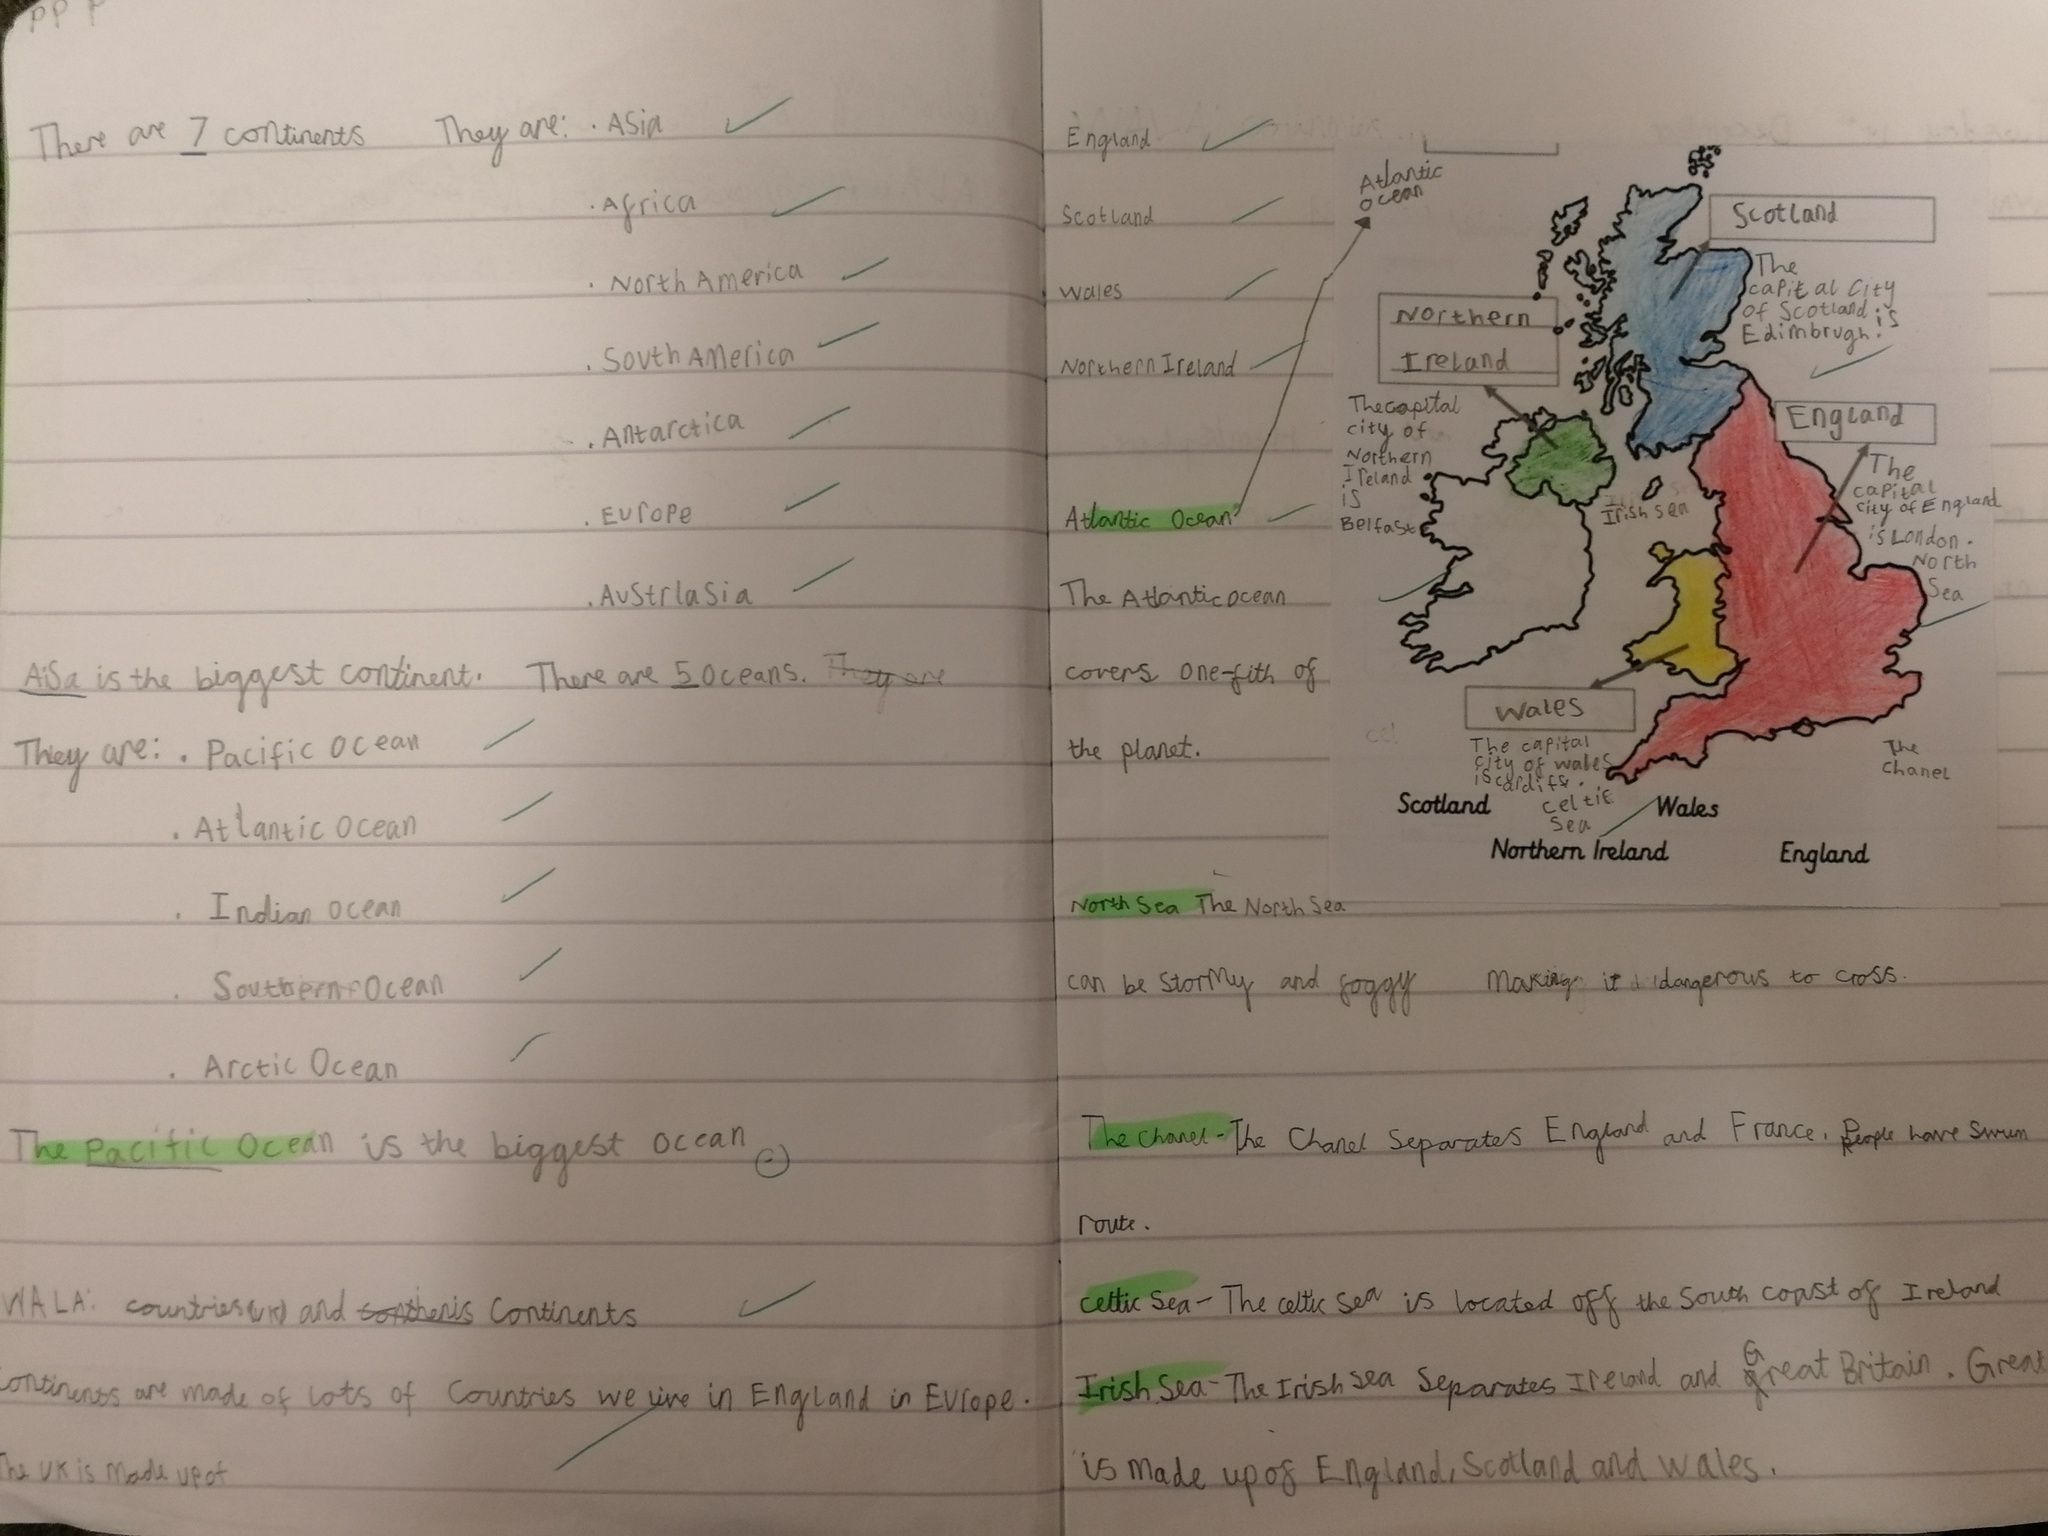 There are 7 continents They are: . ASia
. Africa
. North America
. South America
. Antarctica
. Europe
. AuStrlaSia
AiSa is the biggest continent. There are 5 Oceans. They are
They are: . Pacific Ocean
. Atlantic Ocean
. Indian Ocean
. Southern Ocean
. Arctic Ocean
The Pacific Ocean is the biggest ocean
WALA: countries(UK) and Continents
Continents are made of lots of Countries we live in England in Europe.
The UK is made up of
England
Scotland
Wales
Northern Ireland
Atlantic Ocean
The Atlantic ocean
covers one-fith of
the planet.
Atlantic
Ocean
Scotland
The
capital City
of Scotland is
Edimbrugh.
Northern
Ireland
The capital
city of
Northern
Ireland
is
Belfast
England
The
capital
city of England
is London.
North
Sea
Irish Sea
Wales
The capital
city of wales
is cardiff.
Celtic
Sea
The
Chanel
cel
Scotland
Wales
Northern Ireland
England
North Sea The North Sea
can be Stormy and foggy Making it dangerous to cross.
The Chanel - The Chanel Separates England and France. People have Swum
route.
Celtic Sea - The celtic Sea is located off the South coast of Ireland
Irish Sea - The Irish Sea Separates Ireland and Great Britain. Great
is made up of England, Scotland and Wales.